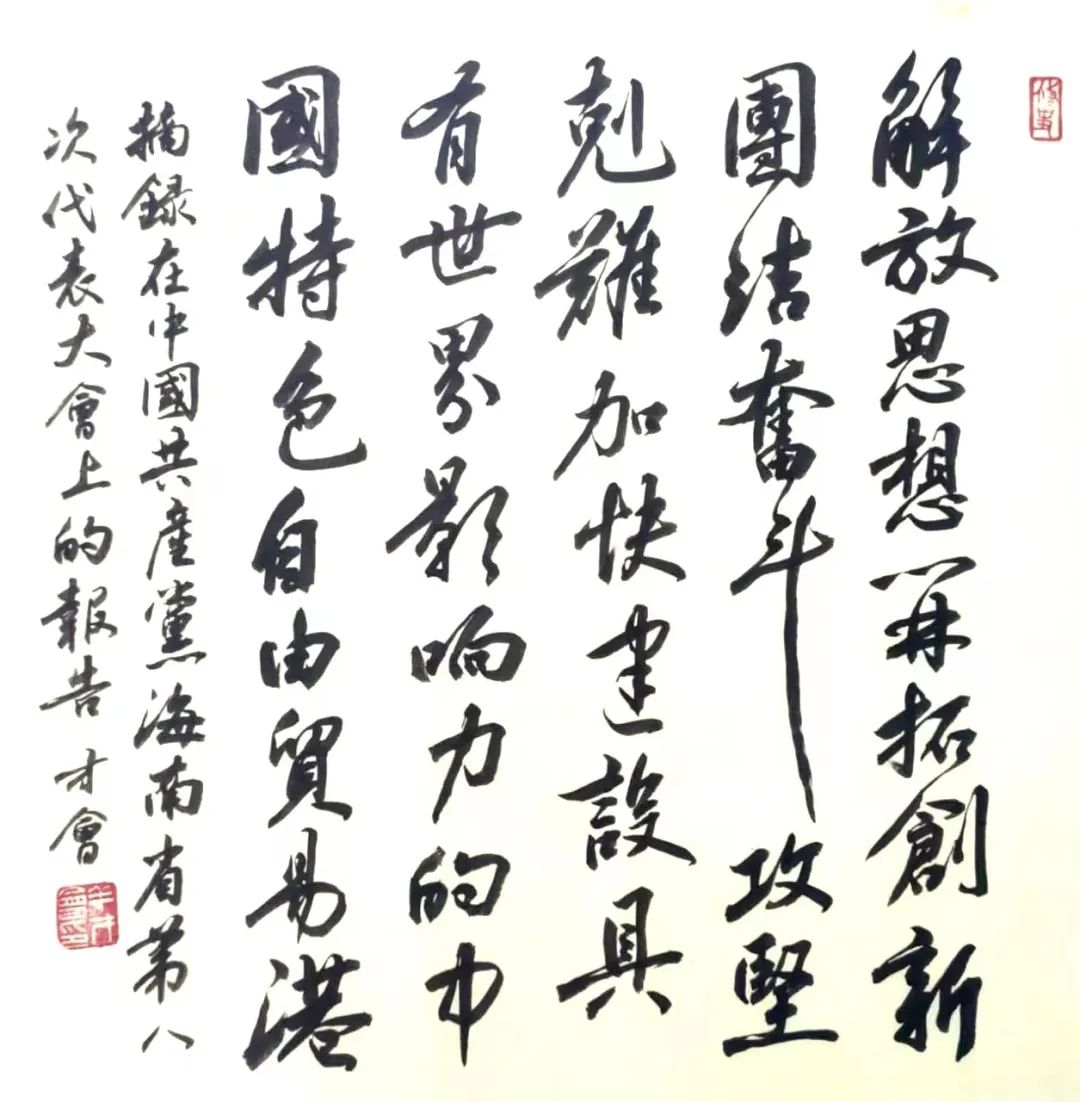 解放思想開拓創新
團结奮斗攻堅
剋難加快建設具
有世界影响力的中
國特色自由貿易港
摘録在中國共産黨海南省第八
次代表大會上的報告 才會